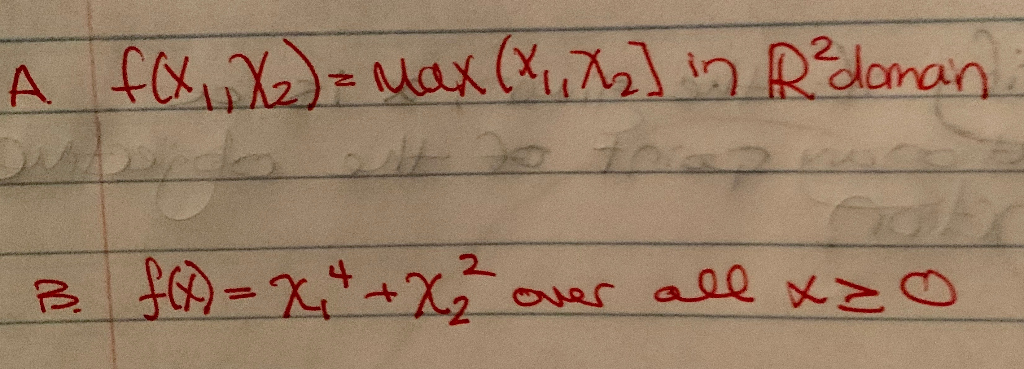 A. f(x₁, x₂) = Max (x₁, x₂] in ℝ² domain
B. f(x) = x₁⁴ + x₂² over all x ≥ 0